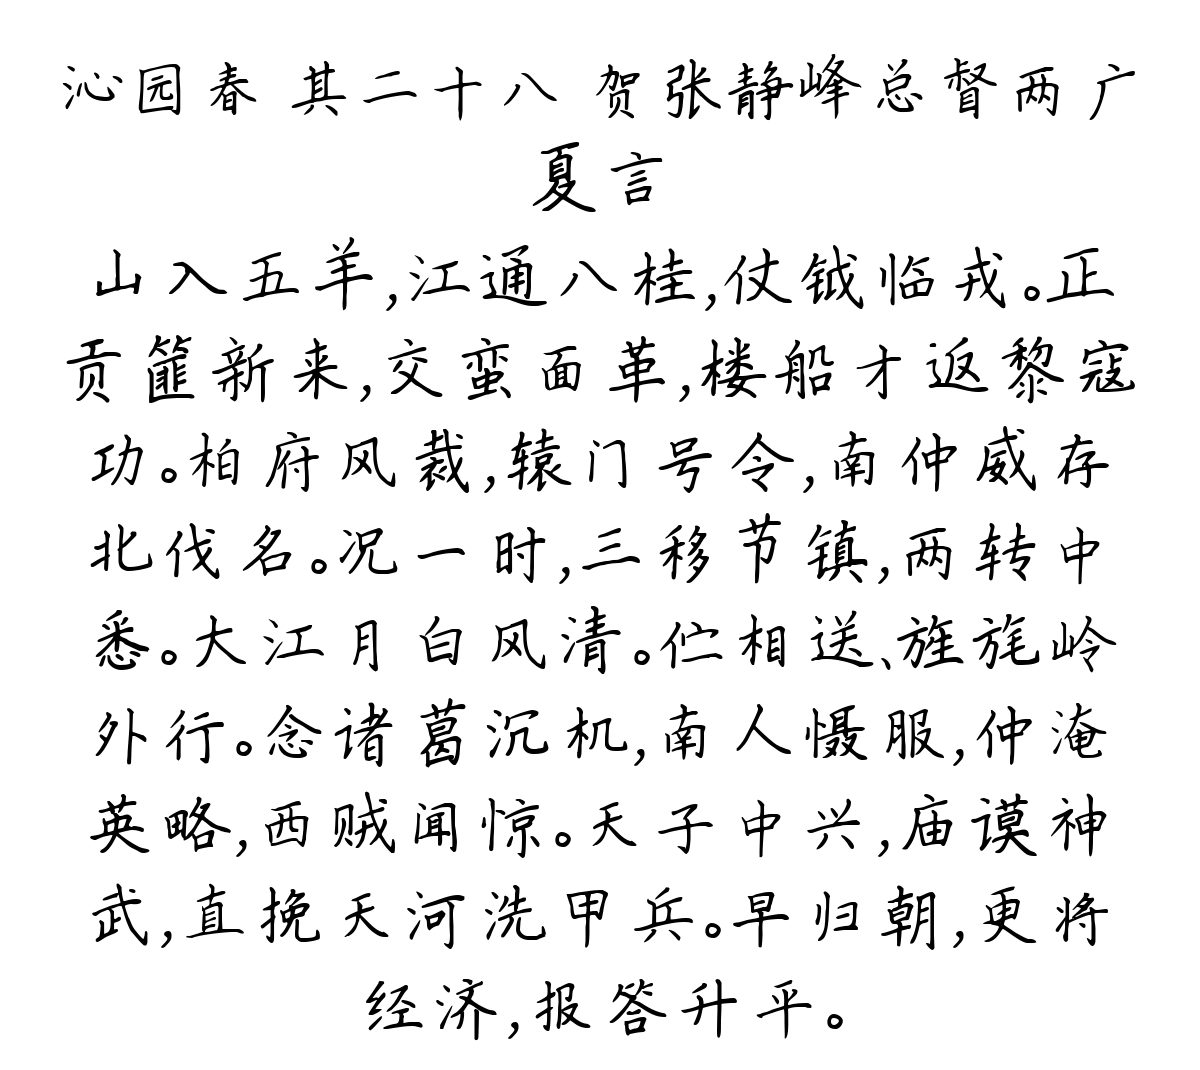 沁园春 其二十八 贺张静峰总督两广
夏言
山入五羊,江通八桂,仗钺临戎。正
贡篚新来,交蛮面革,楼船才返黎寇
功。柏府风裁,辕门号令,南仲威存
北伐名。况一时,三移节镇,两转中
悉。大江月白风清。伫相送、旌旄岭
外行。念诸葛沉机,南人慑服,仲淹
英略,西贼闻惊。天子中兴,庙谟神
武,直挽天河洗甲兵。早归朝,更将
经济,报答升平。